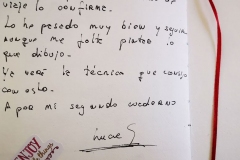 viaje lo confirme.
Lo he pasado muy bien y seguir
aunque me falte pintar lo
que dibujo.
Ya veré la técnica que
con esto.
A por mi segundo cuaderno
ENJOY